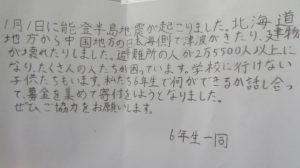 1月1日に能登半島地震が起こりました。北海道
地方から中国地方の日本海側で津波がきたり、建物
が壊れたりしました。避難所の人が2万5500人以上に
なりたくさんの人たちが困っています。学校に行けない
子供たちもいます。私たち6年生で何ができるか話し合っ
て、募金を集めて寄付をしようとなりました。
ぜひ、ご協力をお願いします。
6年生一同